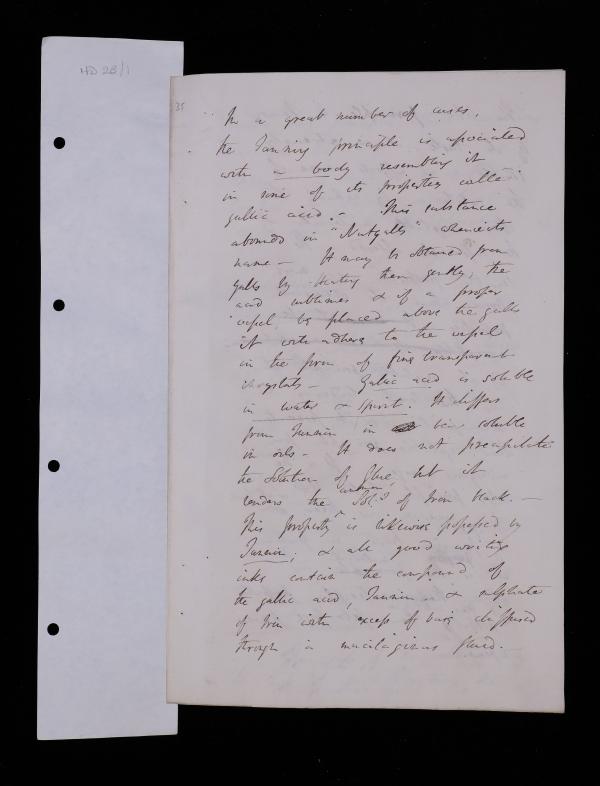 HD 28/1
35
In a great number of cases,
the Tanning principle is associated
with a body resembling it
in some of its properties called
gallic acid. - This substance
abounds in "Nutgalls" whence its
name - It may be obtained from
galls by heating them gently, the
acid sublimes & if a proper
vessel be placed above the galls
it will adhere to the vessel
in the form of fine transparent
chrystals - Gallic acid is soluble
in water & spirit. It differs
from Tannin in being soluble
in oils - It does not precipitate
the Solution of Glue, but it
renders the common Sol:ns of Iron black. -
This property is likewise possessed by
Tannin; & all good writing
inks contain the compound of
the gallic acid, Tannin - & sulphate
of Iron with excess of base diffused
through a mucilaginous fluid. -